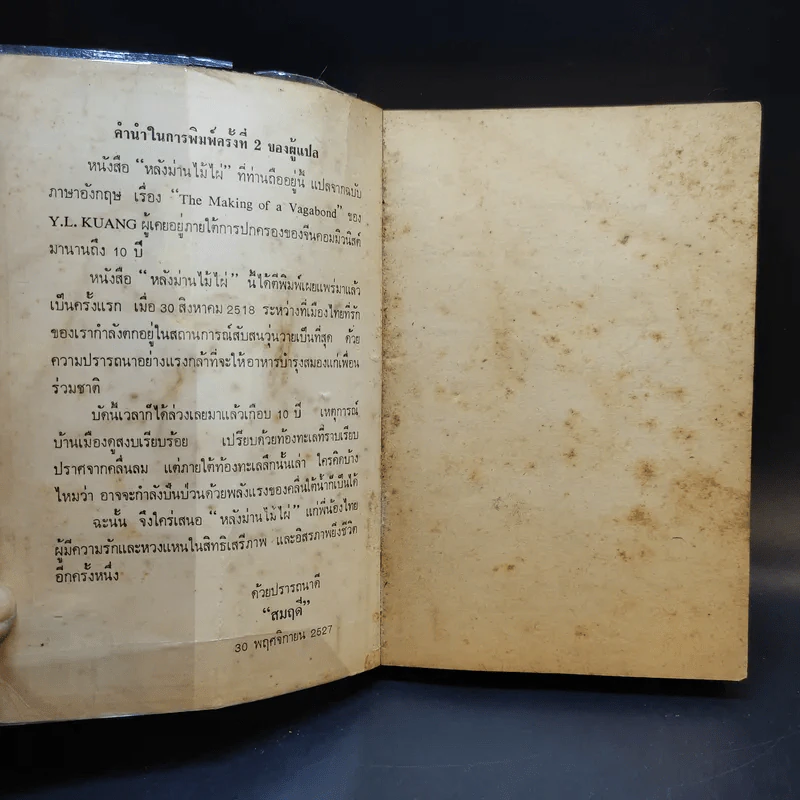 คำนำในการพิมพ์ครั้งที่ 2 ของผู้แปล
หนังสือ “หลังม่านไม้ไผ่” ที่ท่านถืออยู่นี้ แปลจากฉบับ
ภาษาอังกฤษ เรื่อง “The Making of a Vagabond” ของ
Y.L. KUANG ผู้เคยอยู่ภายใต้การปกครองของจีนคอมมิวนิสต์
มานานถึง 10 ปี
หนังสือ “หลังม่านไม้ไผ่” นี้ได้ตีพิมพ์เผยแพร่มาแล้ว
เป็นครั้งแรก เมื่อ 30 สิงหาคม 2518 ระหว่างที่เมืองไทยที่รัก
ของเรากำลังตกอยู่ในสถานการณ์สับสนวุ่นวายเป็นที่สุด ด้วย
ความปรารถนาอย่างแรงกล้าที่จะให้อาหารบำรุงสมองแก่เพื่อน
ร่วมชาติ
บัดนี้เวลาก็ได้ล่วงเลยมาแล้วเกือบ 10 ปี เหตุการณ์
บ้านเมืองดูสงบเรียบร้อย เปรียบด้วยท้องทะเลที่ราบเรียบ
ปราศจากคลื่นลม แต่ภายใต้ท้องทะเลลึกนั้นเล่า ใครคิดบ้าง
ไหมว่า อาจจะกำลังปั่นป่วนด้วยพลังแรงของคลื่นใต้น้ำก็เป็นได้
ฉะนั้น จึงใคร่เสนอ “หลังม่านไม้ไผ่” แก่พี่น้องไทย
ผู้มีความรักและหวงแหนในสิทธิเสรีภาพ และอิสรภาพยิ่งชีวิต
อีกครั้งหนึ่ง
ด้วยปรารถนาดี
“สมฤดี”
30 พฤศจิกายน 2527